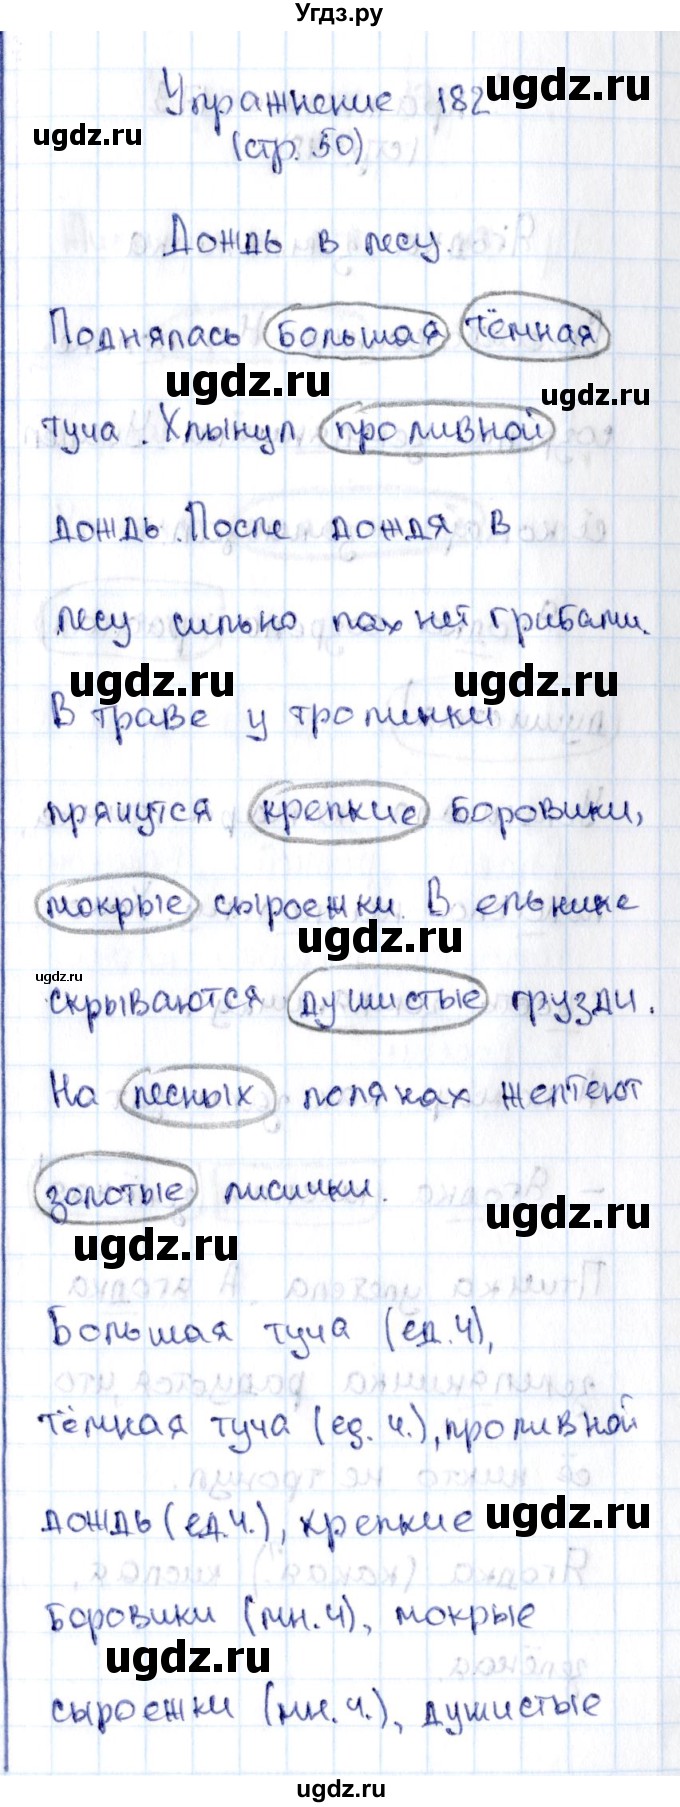 Угдз.ру
Упражнение 182
ugdz.ru
ugdz.ru
(стр. 50)
Дождь в лесу.
Поднялась большая тёмная
ugdz.ru
ugdz.ru
туча. Хлынул проливной
дождь. После дождя в
лесу сильно пахнет грибами.
ugdz.ru
ugdz.ru
В траве у тропинки
прячутся крепкие боровики,
мокрые сыроежки. В ельнике
ugdz.ru
ugdz.ru
скрываются душистые грузди.
На лесных полянах желтеют
золотые лисички.
ugdz.ru
ugdz.ru
Большая туча (ед.ч),
тёмная туча (ед.ч.), проливной
дождь (ед.ч.), крепкие
ugdz.ru
боровики (мн.ч), мокрые
ugdz.ru
сыроежки (мн.ч.), душистые
ugdz.ru